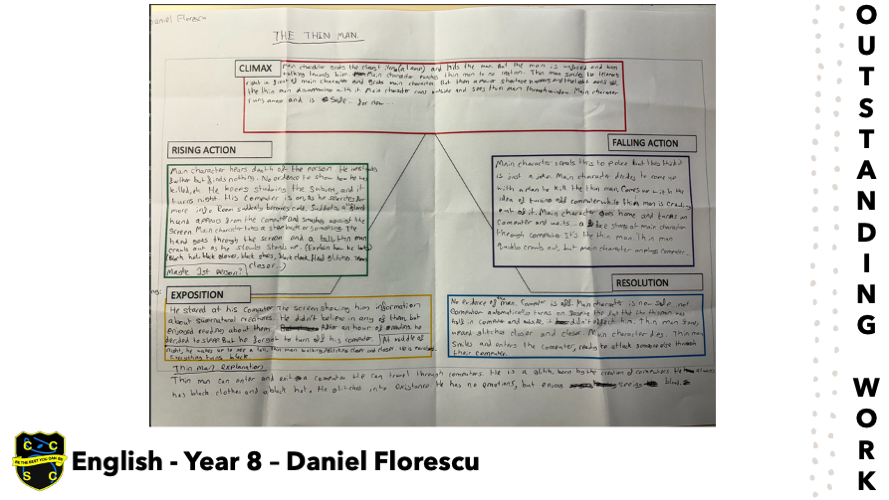 Daniel Florescu
THE THIN MAN.
CLIMAX
Main character grabs the closest item (a lamp) and hits the man. But the man is unfazed and
walking towards him. Main character reaches thin man to no reaction. Thin man smiles he
right in front of main character and grabs main character. But then a power shortage happens and the
the thin man disappears with it. Main character runs outside and sees thin man Main character
runs away and is safe... for now...
RISING ACTION
Main character hears death of the person. He
further but finds nothing. No evidence to show how he was
killed, etc. He keeps studying the subject, and it
turns night. His computer is on, as he searches for
more info. Room suddenly becomes cold. Suddenly a hand
hand appears from the computer and smashes against the
screen. Main character takes a step back or something. The
hand goes through the screen and a tall thin man
crawls out as he stands up. (Explain how he looks)
(Black hat, black gloves, black shoes, black cloak,
Maybe 1st person? closer...)
FALLING ACTION
Main character reports this to police but they think it
is just a joke. Main character decides to come up
with a plan to kill the thin man. Comes up with the
idea of turning off computer while thin man is crawling
out of it. Main character goes home and turns on
computer and waits... a stares at main character
through computer. It's the thin man. Thin man
crawls out, but main character unplugs computer.
EXPOSITION
He stared at his computer. The screen showing him information
about supernatural creatures. He didn't believe in any of them but
enjoyed reading about them. After an hour of reading he
decided to sleep but he forgot to turn off his computer. At middle of
night, he wakes up to see a tall, thin man
Everything turns black.
RESOLUTION
No evidence of man. Computer is off. Main character is now safe... not.
Computer automatically turns on. Despite the fact that the thin man was
half in computer and outside, it didn't affect him. Thin man
glitches closer and closer. Main character dies. Thin man
smiles and enters the computer, ready to attack someone else through
their computer.
Thin Man explanation:
Thin man can enter and exit a computer. He can travel through computers. He is a glitch, born by the creation of computers. He always
has black clothes and a black hat. He glitches into existence. He has no emotions, but seeing blood.
English - Year 8 – Daniel Florescu
C C
BE THE BEST YOU CAN BE
S C
OUTSTANDING WORK